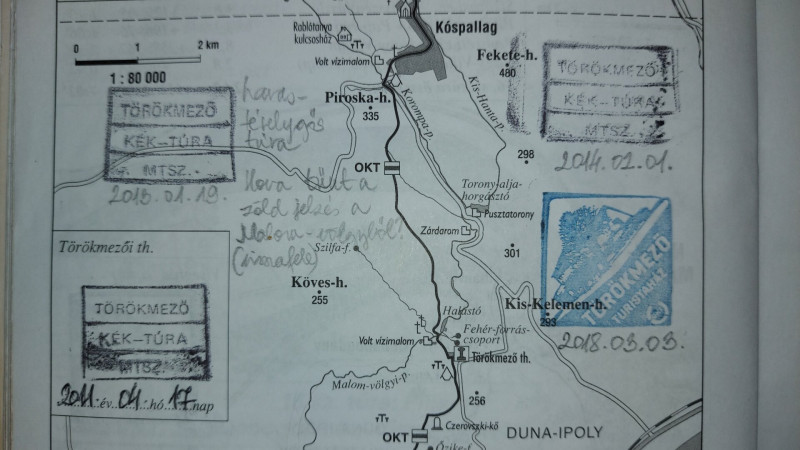 Rablótanya
kulcsosház
Kóspallag
0 1 2 km
1 : 80 000
Volt vízimalom
Fekete-h.
480
Kis-Hanta-p.
Korompa-p.
Piroska-h.
335
TÖRÖKMEZŐ
KÉK-TÚRA
MTSZ.
2013.01.19.
túra
Hova tűnt a
zöld jelzés a
TÖRÖKMEZŐ
KÉK-TÚRA
MTSZ.
2014.02.01.
298
OKT
Torony-alja-
horgásztó
Pusztatorony
Zárdarom
301
Szilfa-f.
Köves-h.
255
Kis-Kelemen-h.
293
TÖRÖKMEZŐ
TURISTAHÁZ
2018.03.03.
Halastó
Fehér-forrás-
csoport
Volt vízimalom
Törökmező th.
Malom-völgyi-p.
256
OKT
Czerovszki-kő
Őzike-f.
DUNA-IPOLY
Törökmezői th.
TÖRÖKMEZŐ
KÉK-TÚRA
MTSZ.
2011 év 04 hó 17 nap